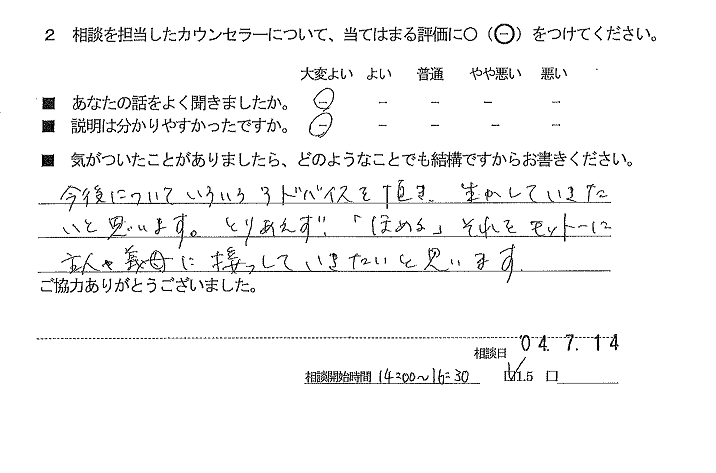 2 相談を担当したカウンセラーについて、当てはまる評価に○(⊖)をつけてください。
大変よい よい 普通 やや悪い 悪い
■ あなたの話をよく聞きましたか。 - - - - -
■ 説明は分かりやすかったですか。 - - - - -
■ 気がついたことがありましたら、どのようなことでも結構ですからお書きください。
今後についていろいろアドバイスを頂き、生かしていきた
いと思います。とりあえず、「ほめる」それをモットーに
主人や義母に接っしていきたいと思います。
ご協力ありがとうございました。
相談日 '04. 7. 14
相談開始時間 14:00~16:30 ☑1.5 □